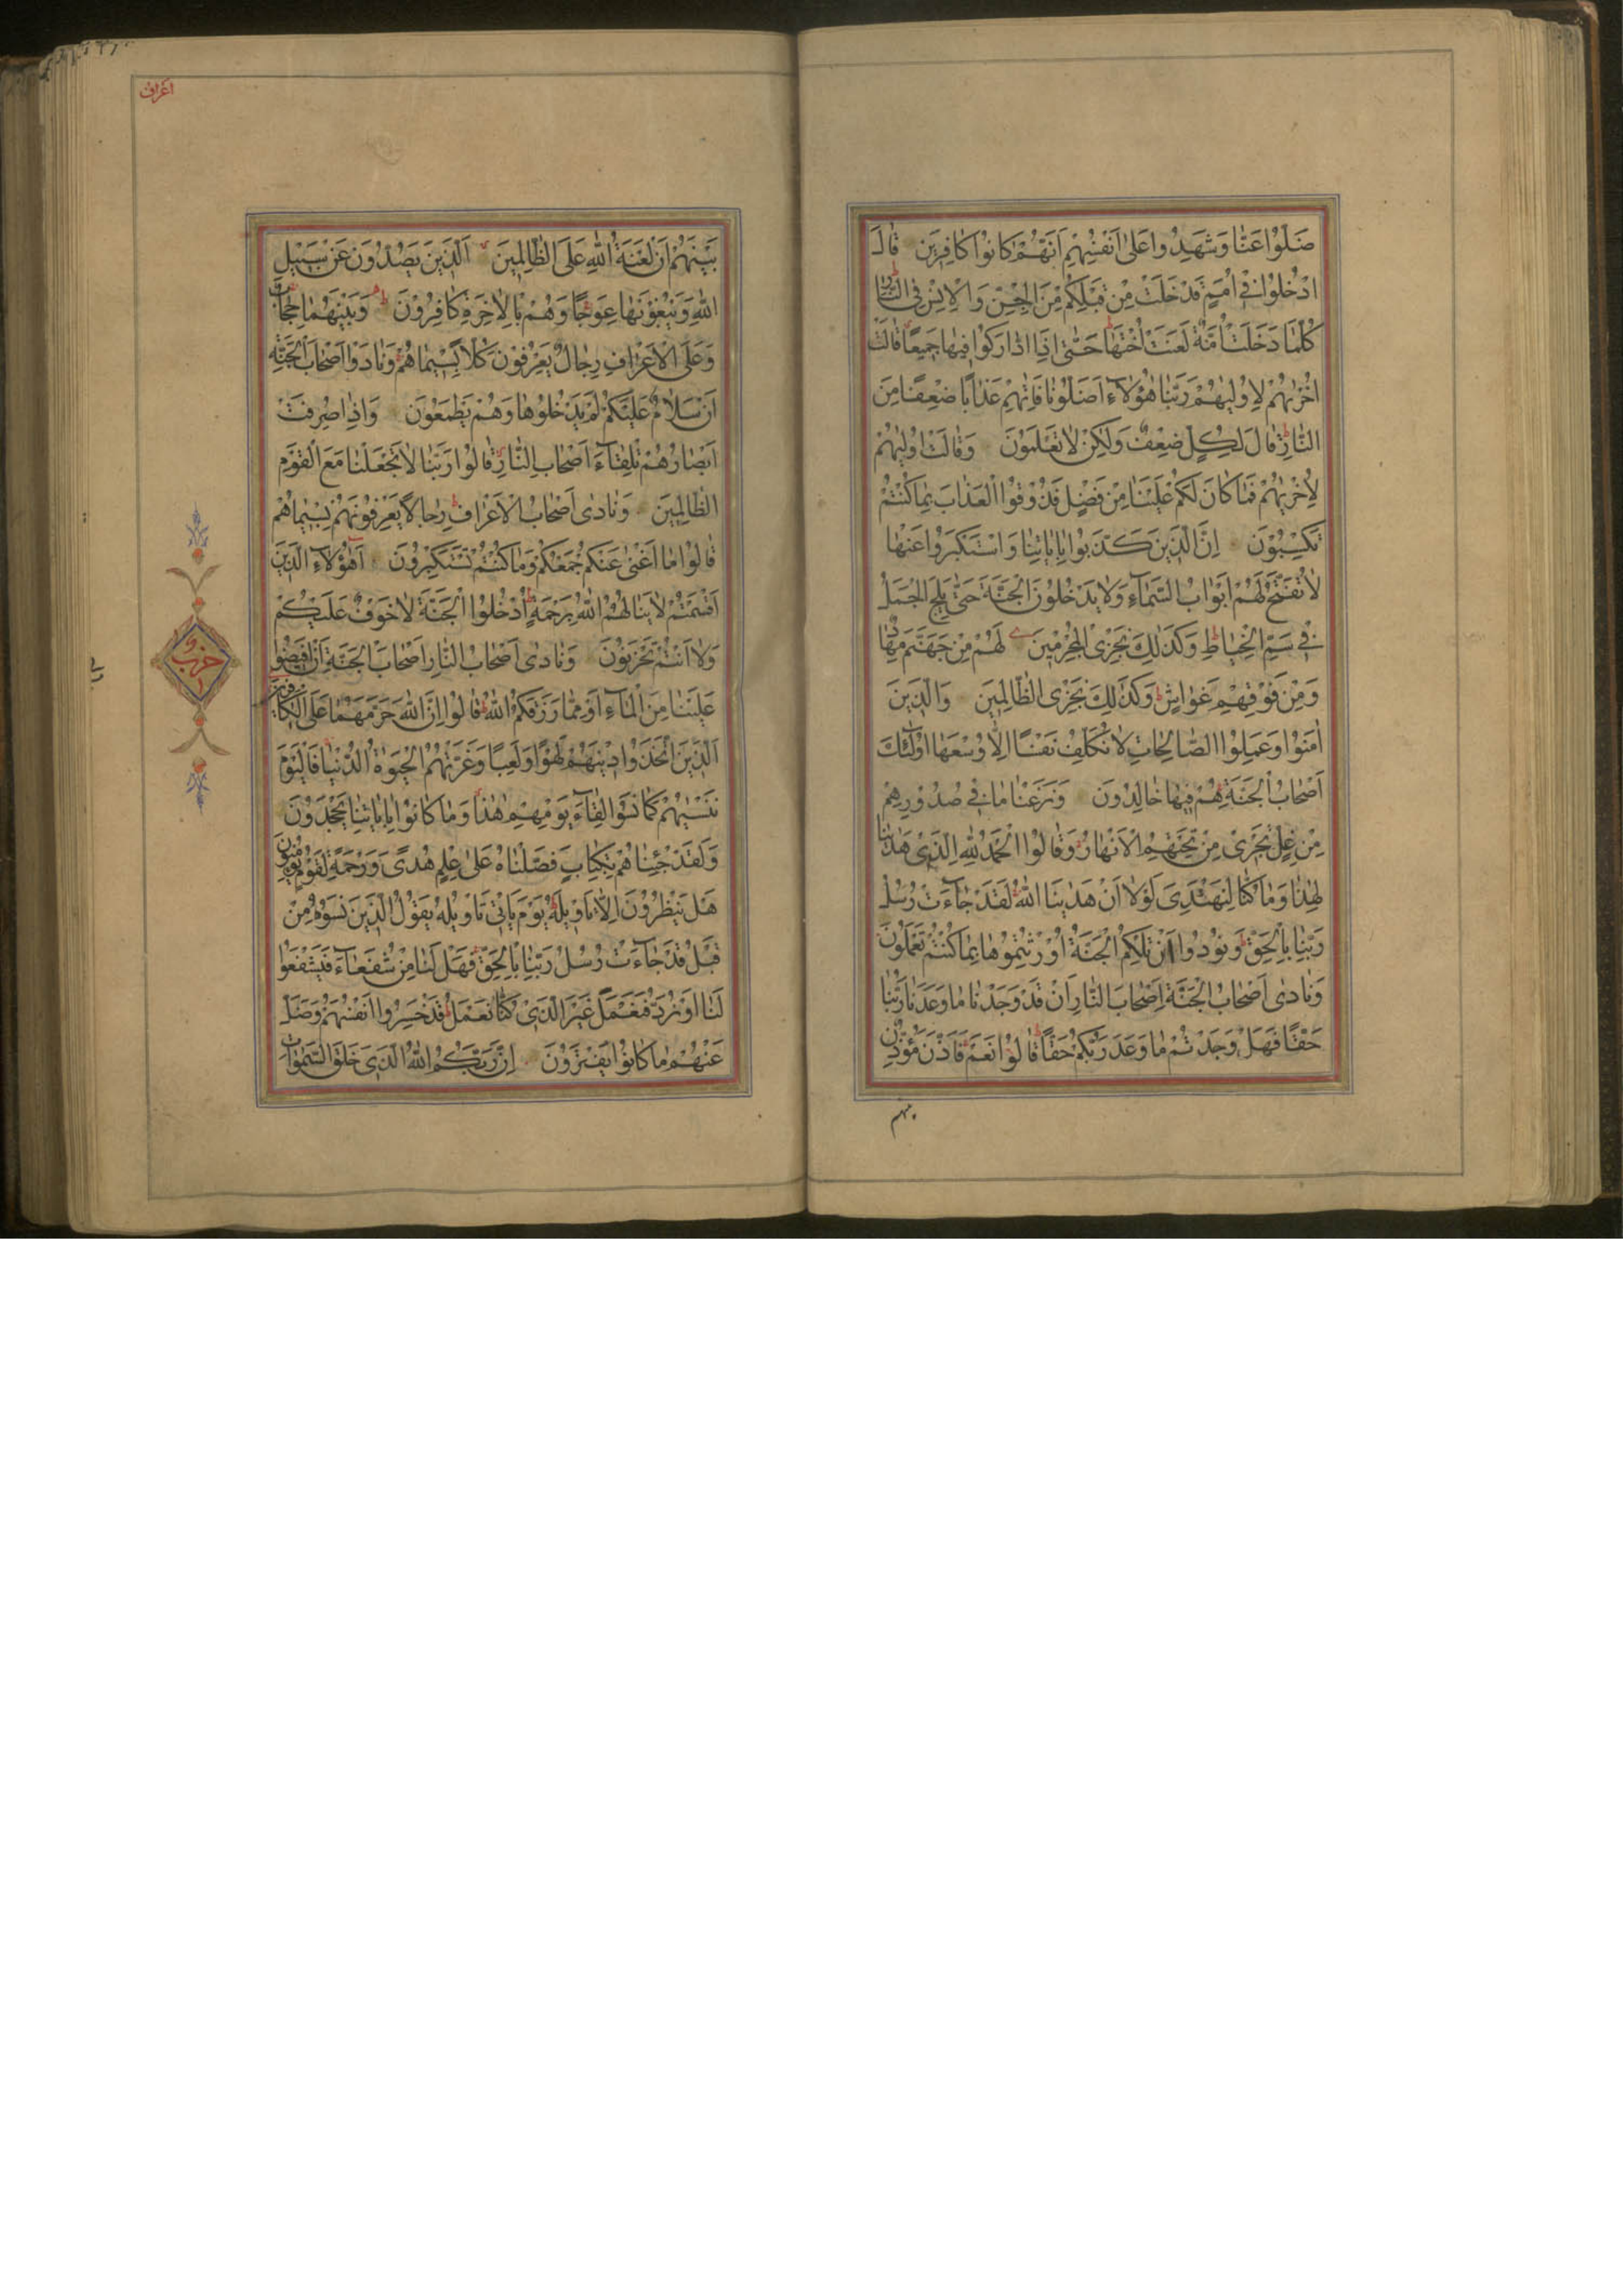 ضَلُّوا عَنَّا وَشَهِدُوا عَلٰى اَنْفُسِهِمْ اَنَّهُمْ كَانُوا كَافِرِينَ قَالَ
ادْخُلُوا فِى اُمَمٍ قَدْ خَلَتْ مِنْ قَبْلِكُمْ مِنَ الْجِنِّ وَالْاِنْسِ فِى النَّارِ
كُلَّمَا دَخَلَتْ اُمَّةٌ لَعَنَتْ اُخْتَهَا حَتّٰى اِذَا ادَّارَكُوا فِيهَا جَمِيعًا قَالَتْ
اُخْرٰيهُمْ لِاُولٰيهُمْ رَبَّنَا هٰؤُلَاءِ اَضَلُّونَا فَاٰتِهِمْ عَذَابًا ضِعْفًا مِنَ
النَّارِ قَالَ لِكُلٍّ ضِعْفٌ وَلٰكِنْ لَا تَعْلَمُونَ وَقَالَتْ اُولٰيهُمْ
لِاُخْرٰيهُمْ فَمَا كَانَ لَكُمْ عَلَيْنَا مِنْ فَضْلٍ فَذُوقُوا الْعَذَابَ بِمَا كُنْتُمْ
تَكْسِبُونَ اِنَّ الَّذِينَ كَذَّبُوا بِاٰيَاتِنَا وَاسْتَكْبَرُوا عَنْهَا
لَا تُفَتَّحُ لَهُمْ اَبْوَابُ السَّمَاءِ وَلَا يَدْخُلُونَ الْجَنَّةَ حَتّٰى يَلِجَ الْجَمَلُ
فِى سَمِّ الْخِيَاطِ وَكَذٰلِكَ نَجْزِى الْمُجْرِمِينَ لَهُمْ مِنْ جَهَنَّمَ مِهَادٌ
وَمِنْ فَوْقِهِمْ غَوَاشٍ وَكَذٰلِكَ نَجْزِى الظَّالِمِينَ وَالَّذِينَ
اٰمَنُوا وَعَمِلُوا الصَّالِحَاتِ لَا نُكَلِّفُ نَفْسًا اِلَّا وُسْعَهَا اُولٰئِكَ
اَصْحَابُ الْجَنَّةِ هُمْ فِيهَا خَالِدُونَ وَنَزَعْنَا مَا فِى صُدُورِهِمْ
مِنْ غِلٍّ تَجْرِى مِنْ تَحْتِهِمُ الْاَنْهَارُ وَقَالُوا الْحَمْدُ لِلّٰهِ الَّذِى هَدٰينَا
لِهٰذَا وَمَا كُنَّا لِنَهْتَدِىَ لَوْلَا اَنْ هَدٰينَا اللّٰهُ لَقَدْ جَاءَتْ رُسُلُ
رَبِّنَا بِالْحَقِّ وَنُودُوا اَنْ تِلْكُمُ الْجَنَّةُ اُورِثْتُمُوهَا بِمَا كُنْتُمْ تَعْمَلُونَ
وَنَادٰى اَصْحَابُ الْجَنَّةِ اَصْحَابَ النَّارِ اَنْ قَدْ وَجَدْنَا مَا وَعَدَنَا رَبُّنَا
حَقًّا فَهَلْ وَجَدْتُمْ مَا وَعَدَ رَبُّكُمْ حَقًّا قَالُوا نَعَمْ فَاَذَّنَ مُؤَذِّنٌ
بينهم
اعراف
بَيْنَهُمْ اَنْ لَعْنَةُ اللّٰهِ عَلَى الظَّالِمِينَ اَلَّذِينَ يَصُدُّونَ عَنْ سَبِيلِ
اللّٰهِ وَيَبْغُونَهَا عِوَجًا وَهُمْ بِالْاٰخِرَةِ كَافِرُونَ وَبَيْنَهُمَا حِجَابٌ
وَعَلَى الْاَعْرَافِ رِجَالٌ يَعْرِفُونَ كُلًّا بِسِيمَاهُمْ وَنَادَوْا اَصْحَابَ الْجَنَّةِ
اَنْ سَلَامٌ عَلَيْكُمْ لَمْ يَدْخُلُوهَا وَهُمْ يَطْمَعُونَ وَاِذَا صُرِفَتْ
اَبْصَارُهُمْ تِلْقَاءَ اَصْحَابِ النَّارِ قَالُوا رَبَّنَا لَا تَجْعَلْنَا مَعَ الْقَوْمِ
الظَّالِمِينَ وَنَادٰى اَصْحَابُ الْاَعْرَافِ رِجَالًا يَعْرِفُونَهُمْ بِسِيمَاهُمْ
قَالُوا مَا اَغْنٰى عَنْكُمْ جَمْعُكُمْ وَمَا كُنْتُمْ تَسْتَكْبِرُونَ اَهٰؤُلَاءِ الَّذِينَ
اَقْسَمْتُمْ لَا يَنَالُهُمُ اللّٰهُ بِرَحْمَةٍ اُدْخُلُوا الْجَنَّةَ لَا خَوْفٌ عَلَيْكُمْ
وَلَا اَنْتُمْ تَحْزَنُونَ وَنَادٰى اَصْحَابُ النَّارِ اَصْحَابَ الْجَنَّةِ اَنْ اَفِيضُوا
حزب
عَلَيْنَا مِنَ الْمَاءِ اَوْ مِمَّا رَزَقَكُمُ اللّٰهُ قَالُوا اِنَّ اللّٰهَ حَرَّمَهُمَا عَلَى الْكَافِرِينَ
اَلَّذِينَ اتَّخَذُوا دِينَهُمْ لَهْوًا وَلَعِبًا وَغَرَّتْهُمُ الْحَيٰوةُ الدُّنْيَا فَالْيَوْمَ
نَنْسٰيهُمْ كَمَا نَسُوا لِقَاءَ يَوْمِهِمْ هٰذَا وَمَا كَانُوا بِاٰيَاتِنَا يَجْحَدُونَ
وَلَقَدْ جِئْنَاهُمْ بِكِتَابٍ فَصَّلْنَاهُ عَلٰى عِلْمٍ هُدًى وَرَحْمَةً لِقَوْمٍ يُؤْمِنُونَ
هَلْ يَنْظُرُونَ اِلَّا تَاْوِيلَهُ يَوْمَ يَاْتِى تَاْوِيلُهُ يَقُولُ الَّذِينَ نَسُوهُ مِنْ
قَبْلُ قَدْ جَاءَتْ رُسُلُ رَبِّنَا بِالْحَقِّ فَهَلْ لَنَا مِنْ شُفَعَاءَ فَيَشْفَعُوا
لَنَا اَوْ نُرَدُّ فَنَعْمَلَ غَيْرَ الَّذِى كُنَّا نَعْمَلُ قَدْ خَسِرُوا اَنْفُسَهُمْ وَضَلَّ
عَنْهُمْ مَا كَانُوا يَفْتَرُونَ اِنَّ رَبَّكُمُ اللّٰهُ الَّذِى خَلَقَ السَّمٰوَاتِ